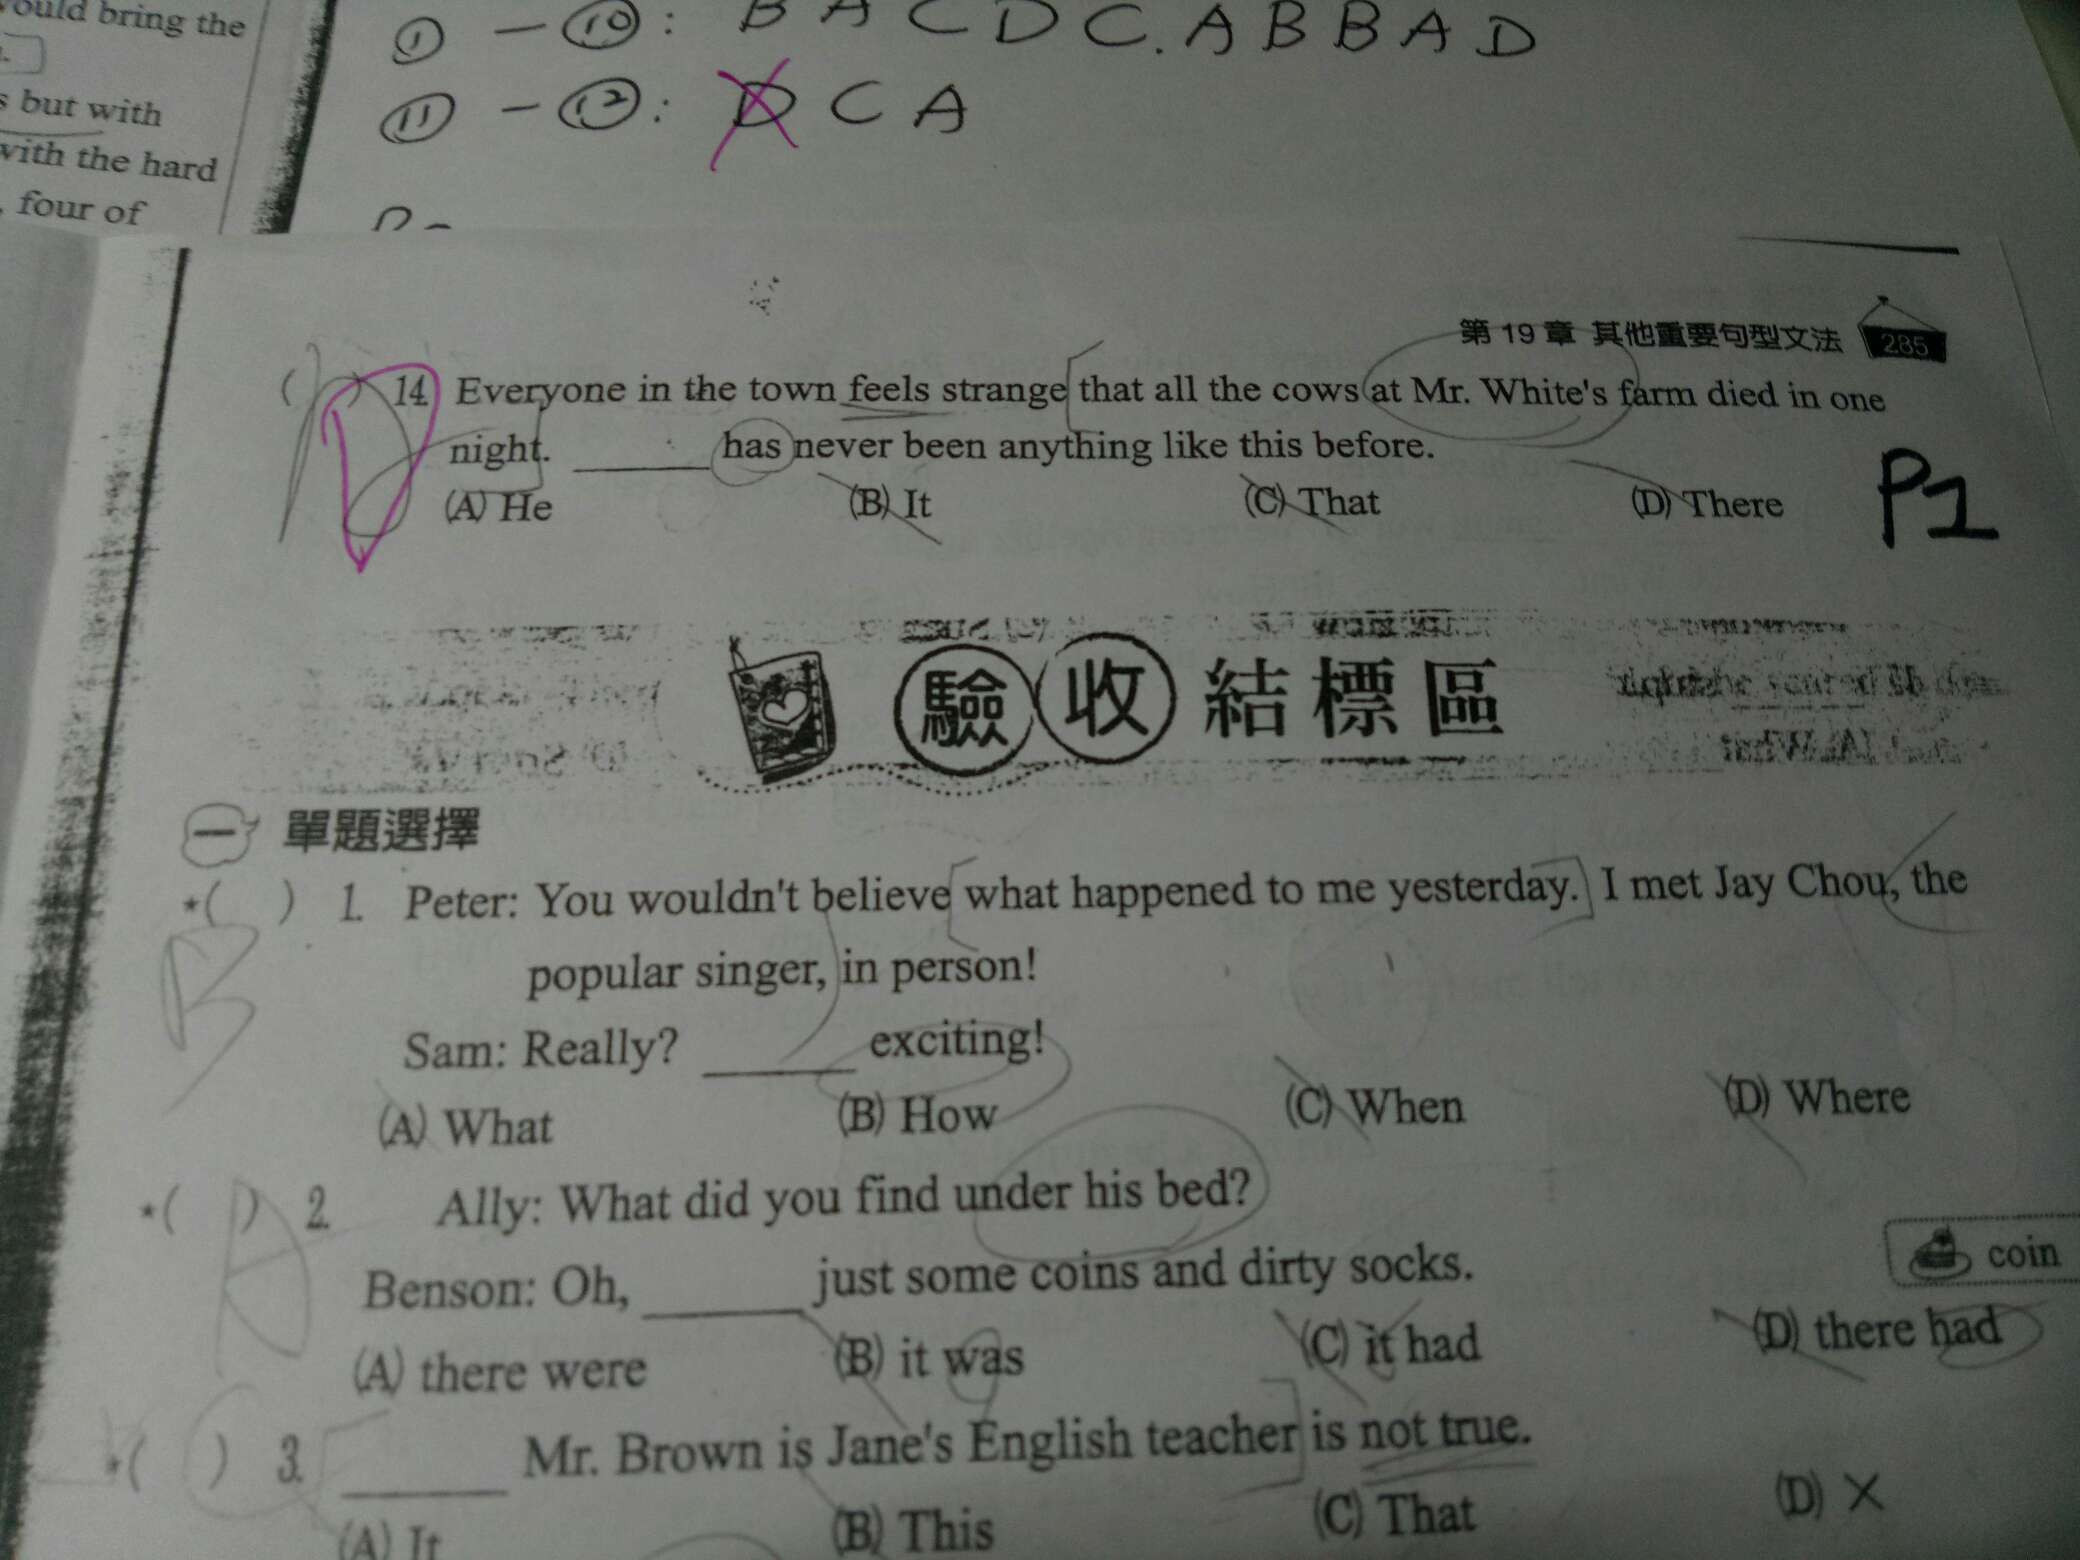 ould bring the
s but with
with the hard
, four of
① — ⑩ : B A C D C . A B B A D
⑪ — ⑫ : D C A
第 19 章 其他重要句型文法 285
( ) 14. Everyone in the town feels strange that all the cows at Mr. White's farm died in one
night. ______ has never been anything like this before.
(A) He (B) It (C) That (D) There
D
P1
驗收結標區
一 單題選擇
*( ) 1. Peter: You wouldn't believe what happened to me yesterday. I met Jay Chou, the
popular singer, in person!
B
Sam: Really? ______ exciting!
(A) What (B) How (C) When (D) Where
*( ) 2. Ally: What did you find under his bed?
A
Benson: Oh, ______ just some coins and dirty socks.
coin
(A) there were (B) it was (C) it had (D) there had
*( ) 3. ______ Mr. Brown is Jane's English teacher is not true.
(A) It (B) This (C) That (D) ×